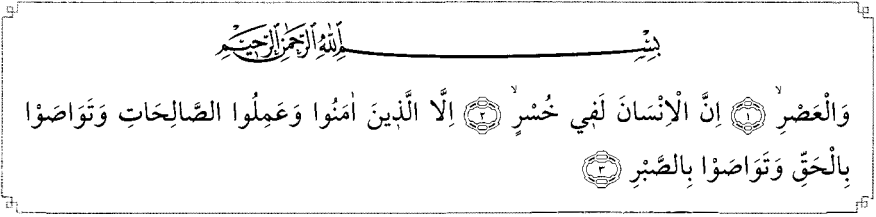 بِسْمِ اللّٰهِ الرَّحْمٰنِ الرَّحِيمِ
وَالْعَصْرِۙ ﴿١﴾ اِنَّ الْاِنْسَانَ لَفٖي خُسْرٍۙ ﴿٢﴾ اِلَّا الَّذٖينَ اٰمَنُوا وَعَمِلُوا الصَّالِحَاتِ وَتَوَاصَوْا
بِالْحَقِّ وَتَوَاصَوْا بِالصَّبْرِ ﴿٣﴾